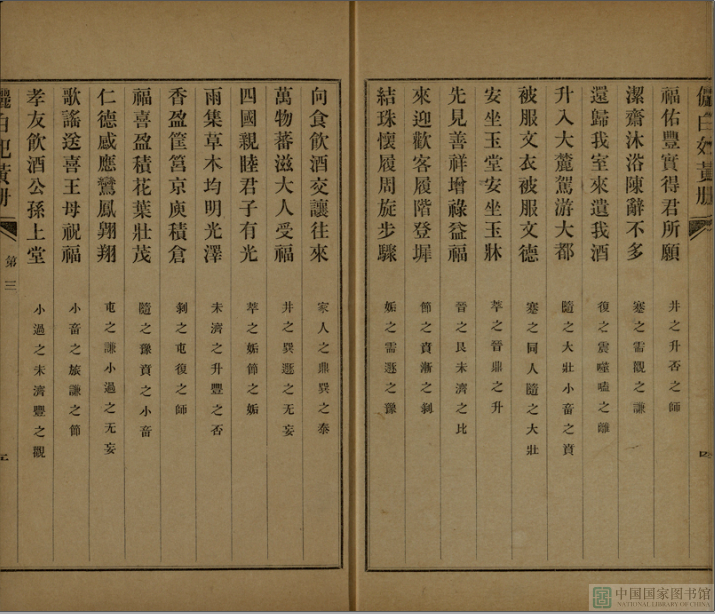 福佑豐實得君所願 井之升否之師
潔齋沐浴陳辭不多 蹇之需觀之謙
還歸我室來遺我酒 復之震噬嗑之離
升入大麓駕游大都 隨之大壯小畜之賁
被服文衣被服文德 蹇之同人隨之大壯
安坐玉堂安坐玉牀 萃之晉鼎之升
先見善祥增祿益福 晉之艮未濟之比
來迎歡客履階登墀 節之賁漸之剝
結珠懷履周旋步驟 姤之需遯之豫
向食飲酒交讓往來 家人之鼎巽之泰
萬物蕃滋大人受福 井之巽遯之无妄
四國親睦君子有光 萃之姤節之姤
雨集草木均明光澤 未濟之升豐之否
香盈筐筥京庾積倉 剝之屯復之師
福喜盈積花葉壯茂 隨之豫賁之小畜
仁德感應鸞鳳翱翔 屯之謙小過之无妄
歌謠送喜王母祝福 小畜之旅謙之節
孝友飲酒公孫上堂 小過之未濟豐之觀
第三
中国国家图书馆
NATIONAL LIBRARY OF CHINA